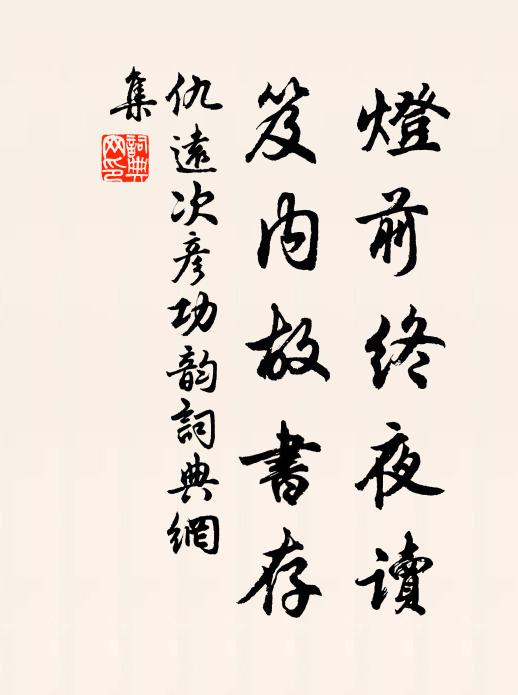 燈前終夜讀
笈內故書存
仇遠次彥功韵詞典網
集
詞典網印